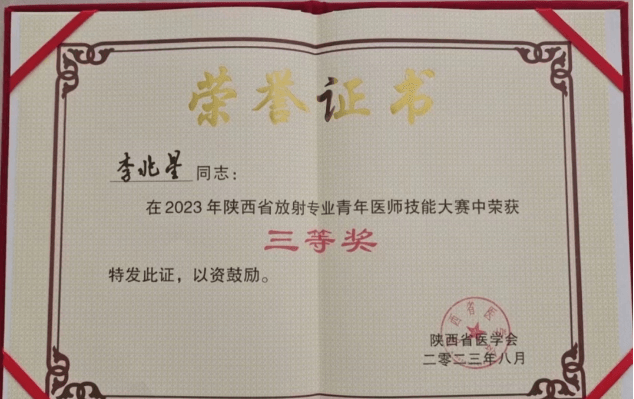 荣誉证书
李兆星同志：
在2023年陕西省放射专业青年医师技能大赛中荣获
三等奖
特发此证，以资鼓励。
陕西省医学会
二〇二三年八月